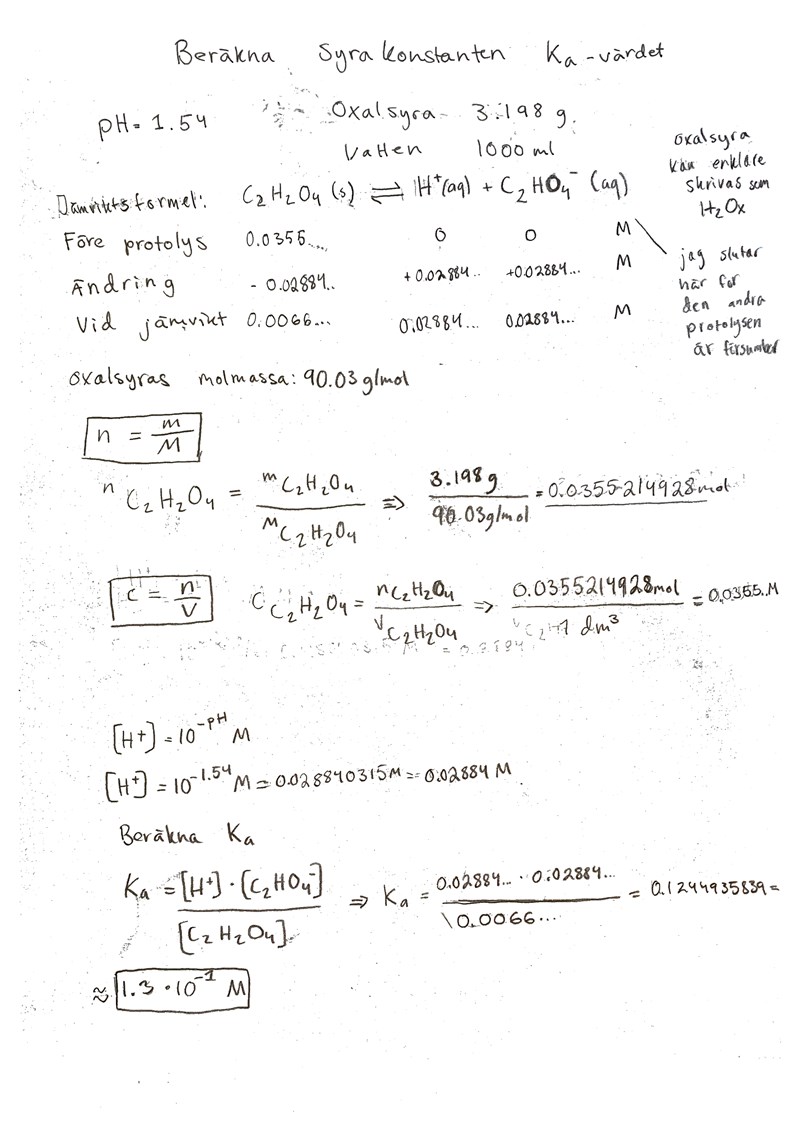 Beräkna Syrakonstanten Ka-värdet
pH = 1.54
Oxalsyra 3.198 g.
Vatten 1000 ml
oxalsyra
kan enklare
skrivas som
H₂Ox
Jämviktsformel: C₂H₂O₄ (s) ⇌ H⁺(aq) + C₂HO₄⁻ (aq)
Före protolys 0.0355... 0 0 M
Ändring - 0.02884.. +0.02884... +0.02884... M
Vid jämvikt 0.0066... 0.02884... 0.02884... M
jag slutar
här för
den andra
protolysen
är försumbar
oxalsyras molmassa: 90.03 g/mol
n = m/M
n C₂H₂O₄ = m C₂H₂O₄ / M C₂H₂O₄ ⇒ 3.198 g / 90.03 g/mol = 0.0355214928 mol
c = n/V
C C₂H₂O₄ = n C₂H₂O₄ / V C₂H₂O₄ ⇒ 0.0355214928 mol / 1 dm³ = 0.0355.. M
[H⁺] = 10^-pH M
[H⁺] = 10^-1.54 M = 0.028840315 M = 0.02884 M
Beräkna Ka
Ka = [H⁺] · [C₂HO₄⁻] / [C₂H₂O₄] ⇒ Ka = 0.02884... · 0.02884... / 0.0066... = 0.1244935839 =
≈ 1.3 · 10⁻¹ M